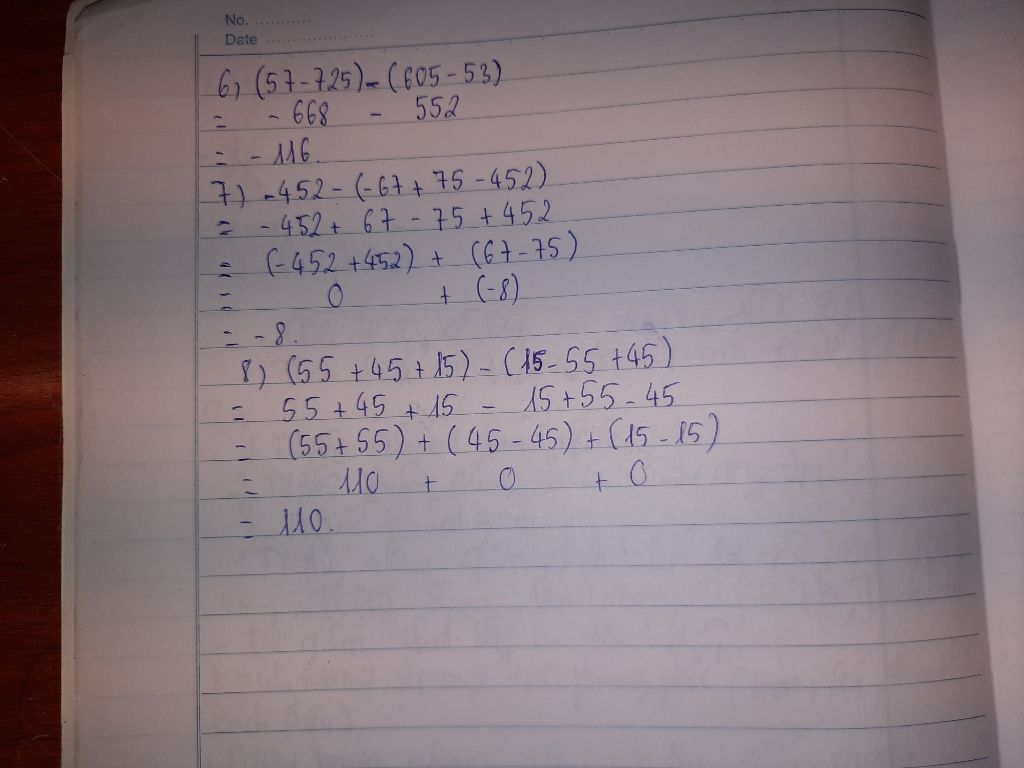 No. ............
Date ......................
6) (57-725)-(605-53)
= -668 - 552
= -116.
7) -452-(-67+75-452)
= -452+67-75+452
= (-452+452)+(67-75)
= 0 + (-8)
= -8.
8) (55+45+15)-(15-55+45)
= 55+45+15-15+55-45
= (55+55)+(45-45)+(15-15)
= 110 + 0 + 0
= 110.